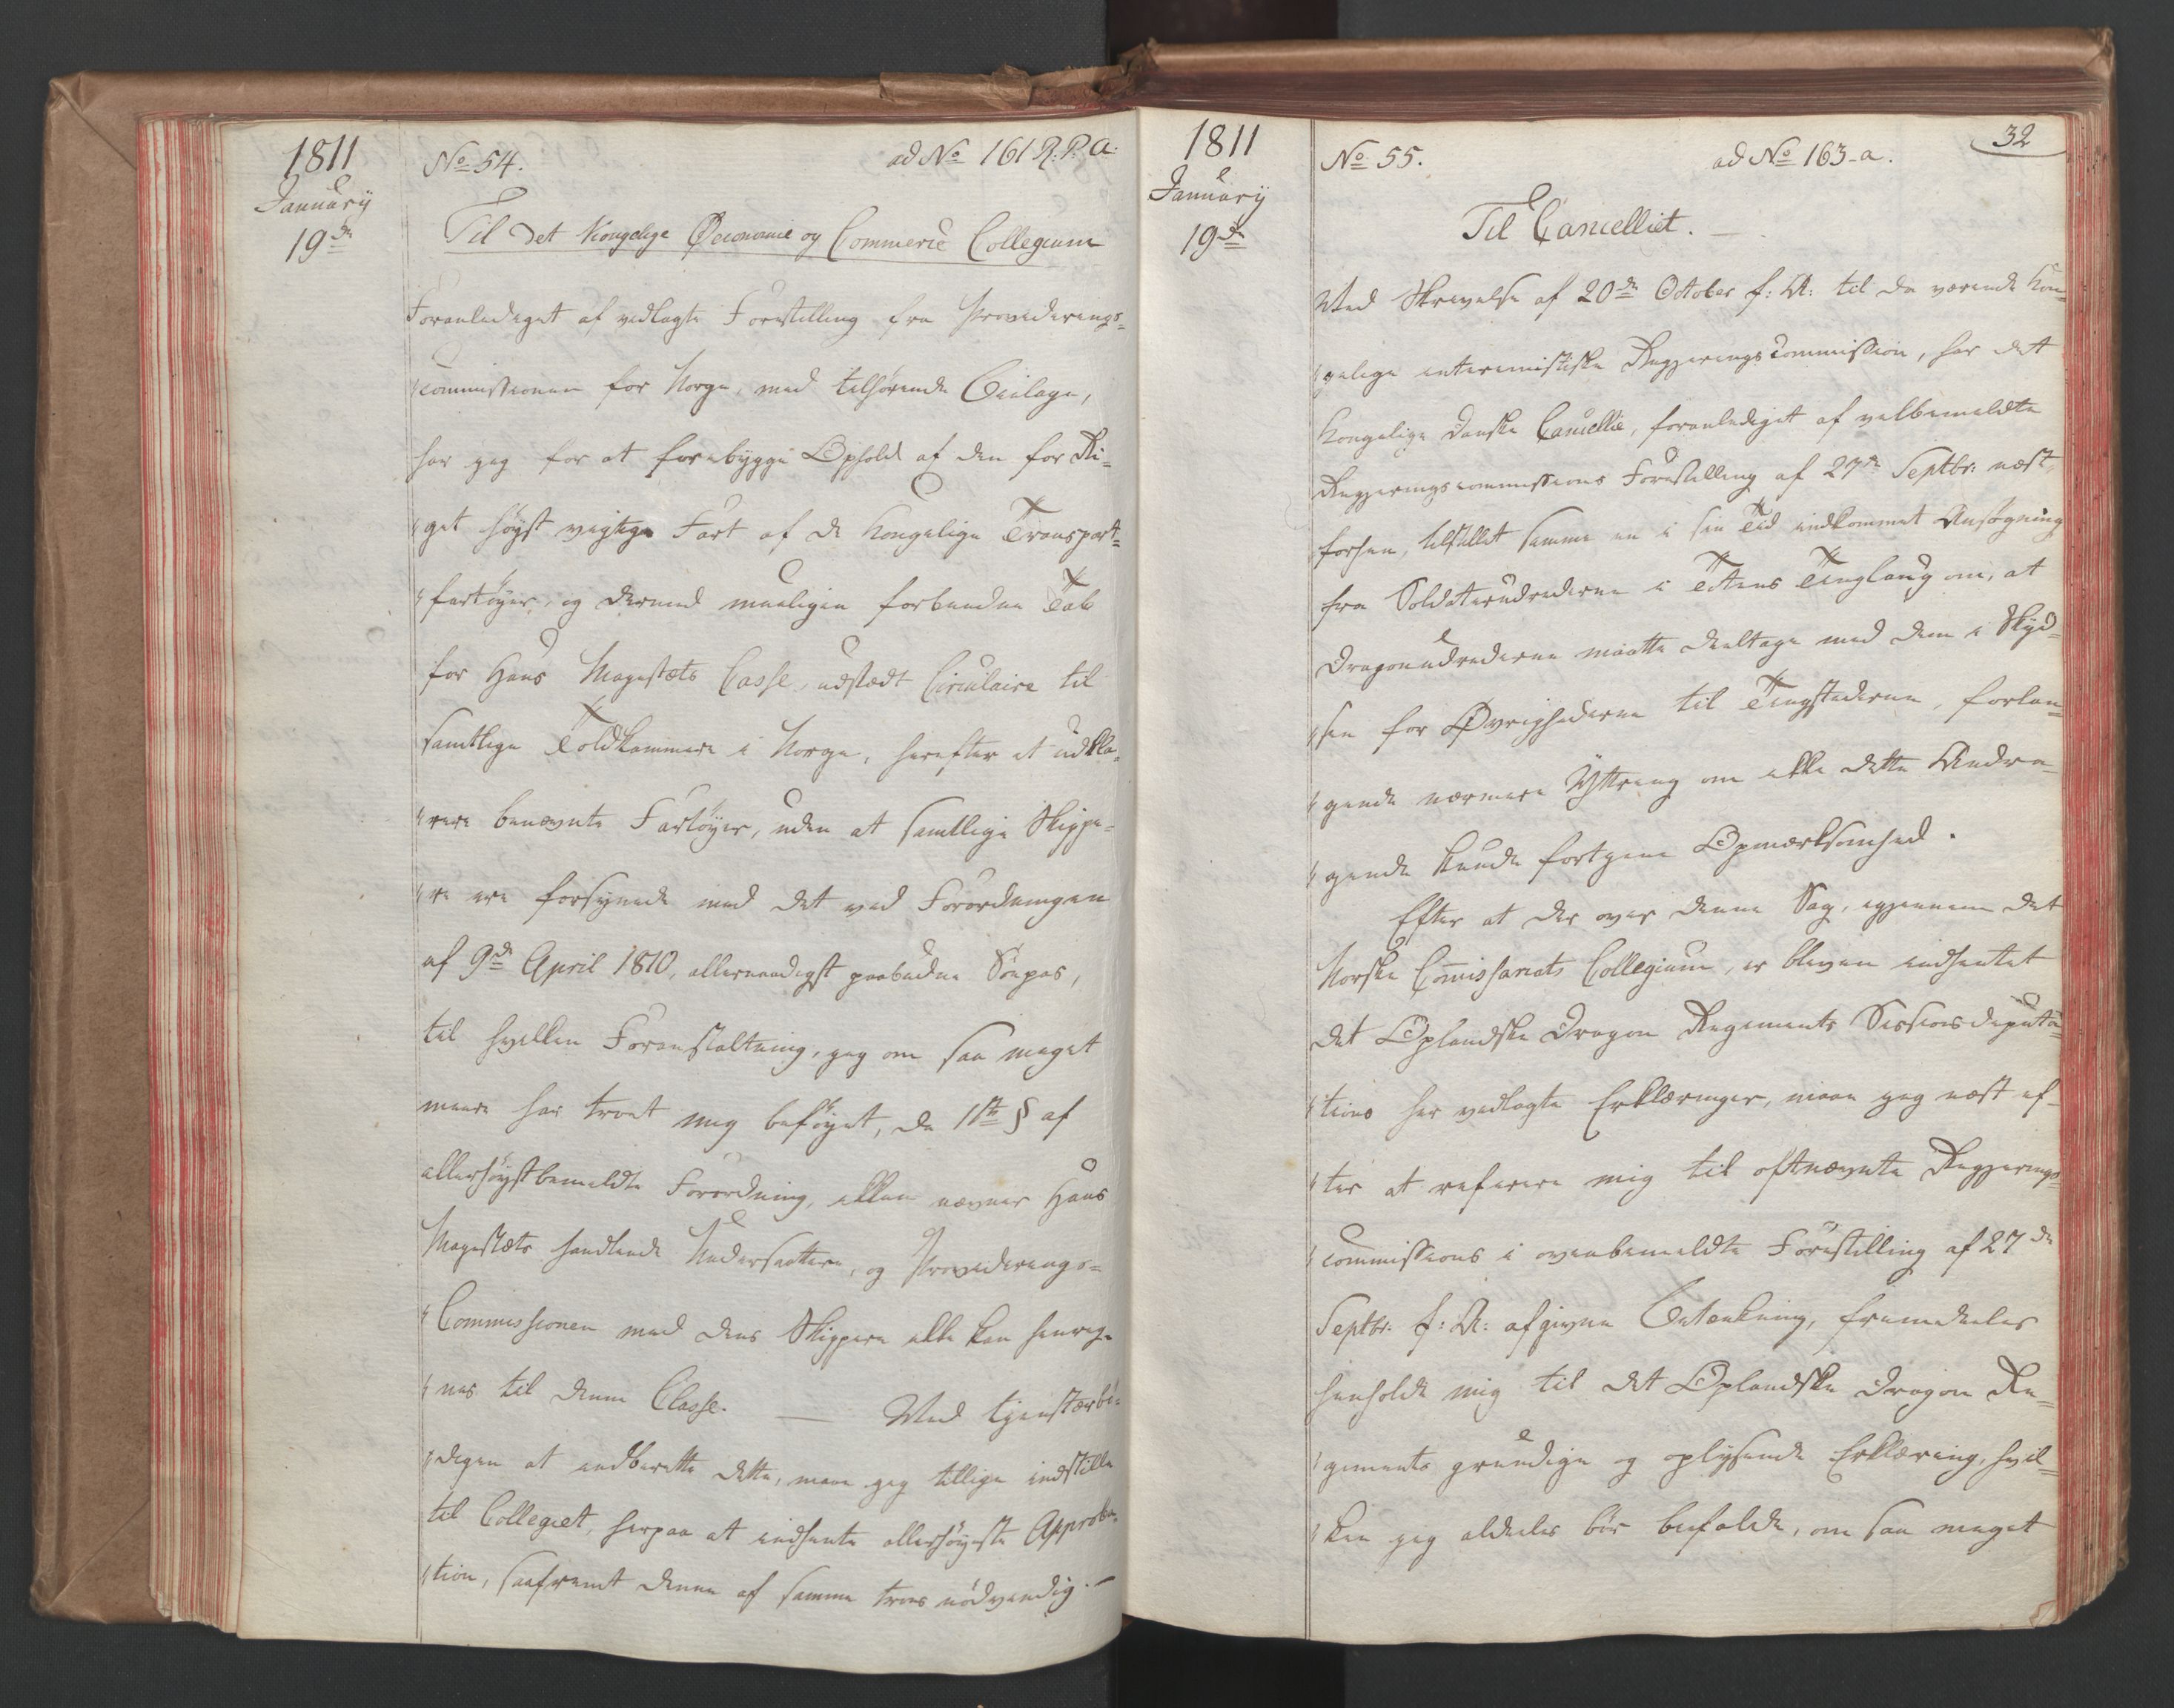 1811
January
19de
No 54.
ad No 161 R: P. a:
Til det Kongelige Oeconomie og Commerce Collegium
Foranlediget af vedlagte Forestilling fra Providerings-
commissionen for Norge, med tilhørende Beilage,
har jeg for at forebygge Ophold af den for Ri-
get høyst vigtige Fart af de Kongelige Transport-
fartøyer, og dermed mueligen forbundne Tab
for Hans Majestæts Casse, udstædt Circulaire til
samtlige Toldkammere i Norge, herefter at udkla-
rere benævnte Fartøyer, uden at samtlige Skippe-
re ere forsynede med det ved Forordningen
af 9de April 1810, allernaadigst paabudne Søepas,
til hvilken Foranstaltning, jeg om saa meget
meere har troet mig beføyet, da 11te § af
allerhøystbemeldte Forordning, alleene nævner Hans
Majestæts handlende Undersaattere, og Providerings-
Commissionen med dens Skippere ikke kan henreg-
nes til denne Classe. — Ved tjenstærbø-
digen at indberette dette, maae jeg tillige indstille
til Collegiet, herpaa at indhente allerhøyeste Approba-
tion, saafremt denne af samme troes nødvendig. —
1811
January
19de
No 55.
ad No 163-a.
32
Til Cancelliet. —
Ved Skrivelse af 20de October f: A: til da værende Kon-
gelige interimistiske Regjerings Commission, har det
Kongelige Danske Cancellie, foranlediget af velbemeldte
Regjeringscommissions Forestilling af 27de Septbr: næst
forhen, tilstillet samme en i sin Tid indkommet Ansøgning
fra Soldaterudrederne i Totens Tinglaug om, at
Dragonudrederne maatte deeltage med dem i Skyd-
sen for Øvrighederne til Tingstederne, forlan-
gende nærmere Yttring om ikke dette Andra-
gende kunde fortjene Opmærksomhed.
Efter at der over denne Sag, igjennem det
Norske Comissariats Collegium, er bleven indhentet
det Oplandske Dragon Regiments Sessionsdeputa-
tions her vedlagte Erklæringer, maae jeg næst ef-
ter at referere mig til oftnævnte Regjerings-
commissions i ovenbemeldte Forestilling af 27de
Septbr: f: A: afgivne Betænkning, fremdeeles
henholde mig til det Oplandske Dragon Re-
giments grundige og oplysende Erklæring, hvil-
ken jeg aldeeles bør befalde, om saa meget